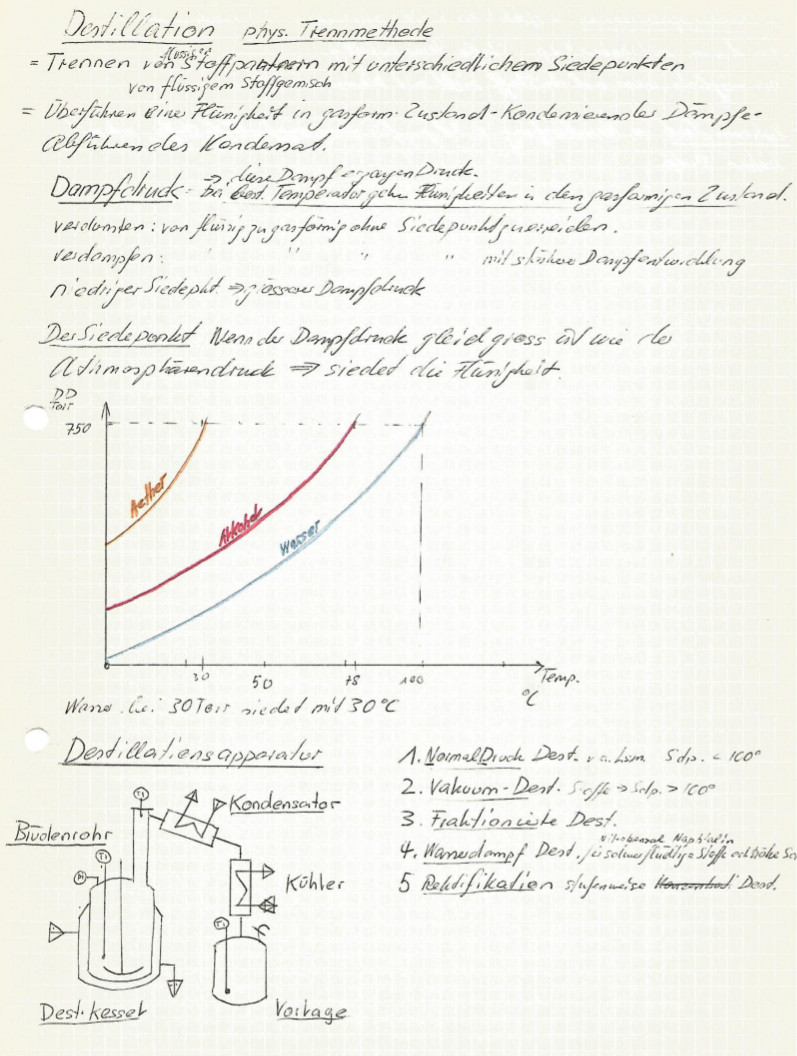 Destillation phys. Trennmethode
flüssigen
= Trennen von Stoffpaaren mit unterschiedlichem Siedepunkten
von flüssigem Stoffgemisch
= Überführen einer Flüssigkeit in gasform. Zustand - Kondensieren der Dämpfe -
Abführen des Kondensat.
⇒ diese Dampf erzeugen Druck.
Dampfdruck = bei best. Temperatur gehen Flüssigkeiten in den gasförmigen Zustand.
verdunsten: von flüssig zu gasförmig ohne Siedepunkt zu erreichen.
verdampfen: " " " " mit stärkerer Dampfentwicklung
niedriger Siedepkt. ⇒ grösserer Dampfdruck
Der Siedepunkt Wenn der Dampfdruck gleich gross ist wie der
Athmosphärendruck ⇒ siedet die Flüssigkeit.
DD
Torr
750
Aether
Alkohol
Wasser
30 50 78 100 Temp.
°C
Wasser bei 30 Torr siedet mit 30°C
Destillationsapparatur
1. NormalDruck Dest. Sdp. < 100°
2. Vakuum-Dest. Stoffe → Sdp. > 100°
3. Fraktionierte Dest.
Nitrobenzol Naphtalin
4. Wasserdampf Dest. für schwerflüchtige Stoffe
5 Rektifikation stufenweise Dest.
TI
Kondensator
Brüdenrohr
TI
PI
Kühler
TI
Dest. kessel
Vorlage